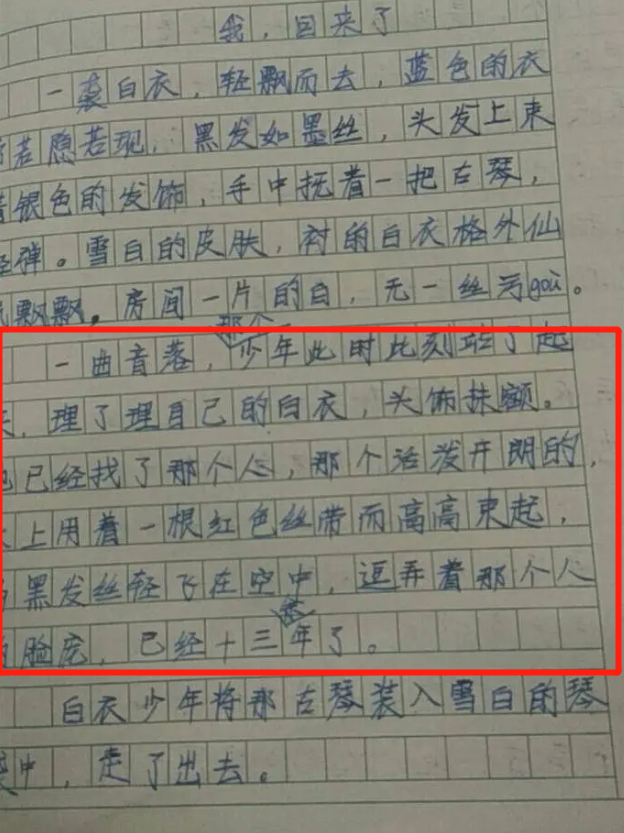 我，回来了
一袭白衣，轻飘而去，蓝色的衣
若隐若现，黑发如墨丝，头发上束
银色的发饰，手中抚着一把古琴，
轻弹。雪白的皮肤，衬的白衣格外仙
飘飘。房间一片的白，无一丝污goù。
一曲音落，那个少年此时此刻站了起
，理了理自己的白衣，头饰抹额。
已经找了那个人，那个活发开朗的，
上用着一根红色丝带而高高束起，
黑发丝轻飞在空中，逗弄着那个人
脸庞，已经十三年了。
白衣少年将那古琴装入雪白的琴
中，走了出去。